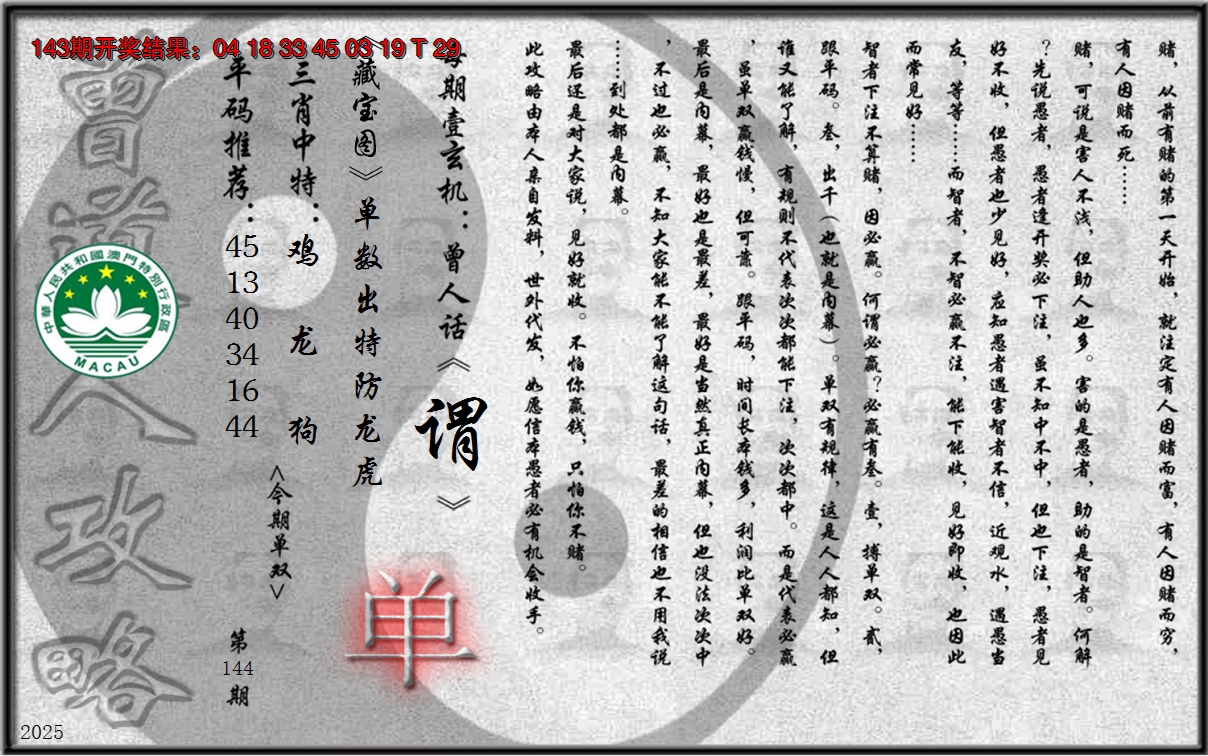 143期开奖结果：04 18 33 45 03 19 T 29
赌，从前有赌的第一天开始，就注定有人因赌而富，有人因赌而穷，
有人因赌而死……
赌，可说是害人不浅，但助人也多。害的是愚者，助的是智者。何解
？先说愚者，愚者逢开奖必下注，虽不知中不中，但也下注，愚者见
好不收，但愚者也少见好，应知愚者遇害智者不信，近观水，遇愚当
友，等等……而智者，不智必赢不注，能下能收，见好即收，也因此
而常见好……
智者下注不算赌，因必赢。何谓必赢？必赢有叁。壹，搏单双。贰，
跟平码。叁，出千（也就是内幕）。单双有规律，这是人人都知，但
谁又能了解，有规则不代表次次都能下注，次次都中。而是代表必赢
，虽单双赢钱慢，但可靠。跟平码，时间长本钱多，利润比单双好。
最后是内幕，最好也是最差，最好是当然真正内幕，但也没法次次中
，不过也必赢，不知大家能不能了解这句话，最差的相信也不用我说
……到处都是内幕。
最后还是对大家说，见好就收。不怕你赢钱，只怕你不赌。
此攻略由本人亲自发料，世外代发，如愿信本愚者必有机会收手。
每期壹玄机：曾人话《谓》
《藏宝图》单数出特防龙虎
单
三肖中特：鸡 龙 狗
<今期单双>
平码推荐：45 13 40 34 16 44
第144期
曾道人攻略
中華人民共和國澳門特別行政區
MACAU
2025